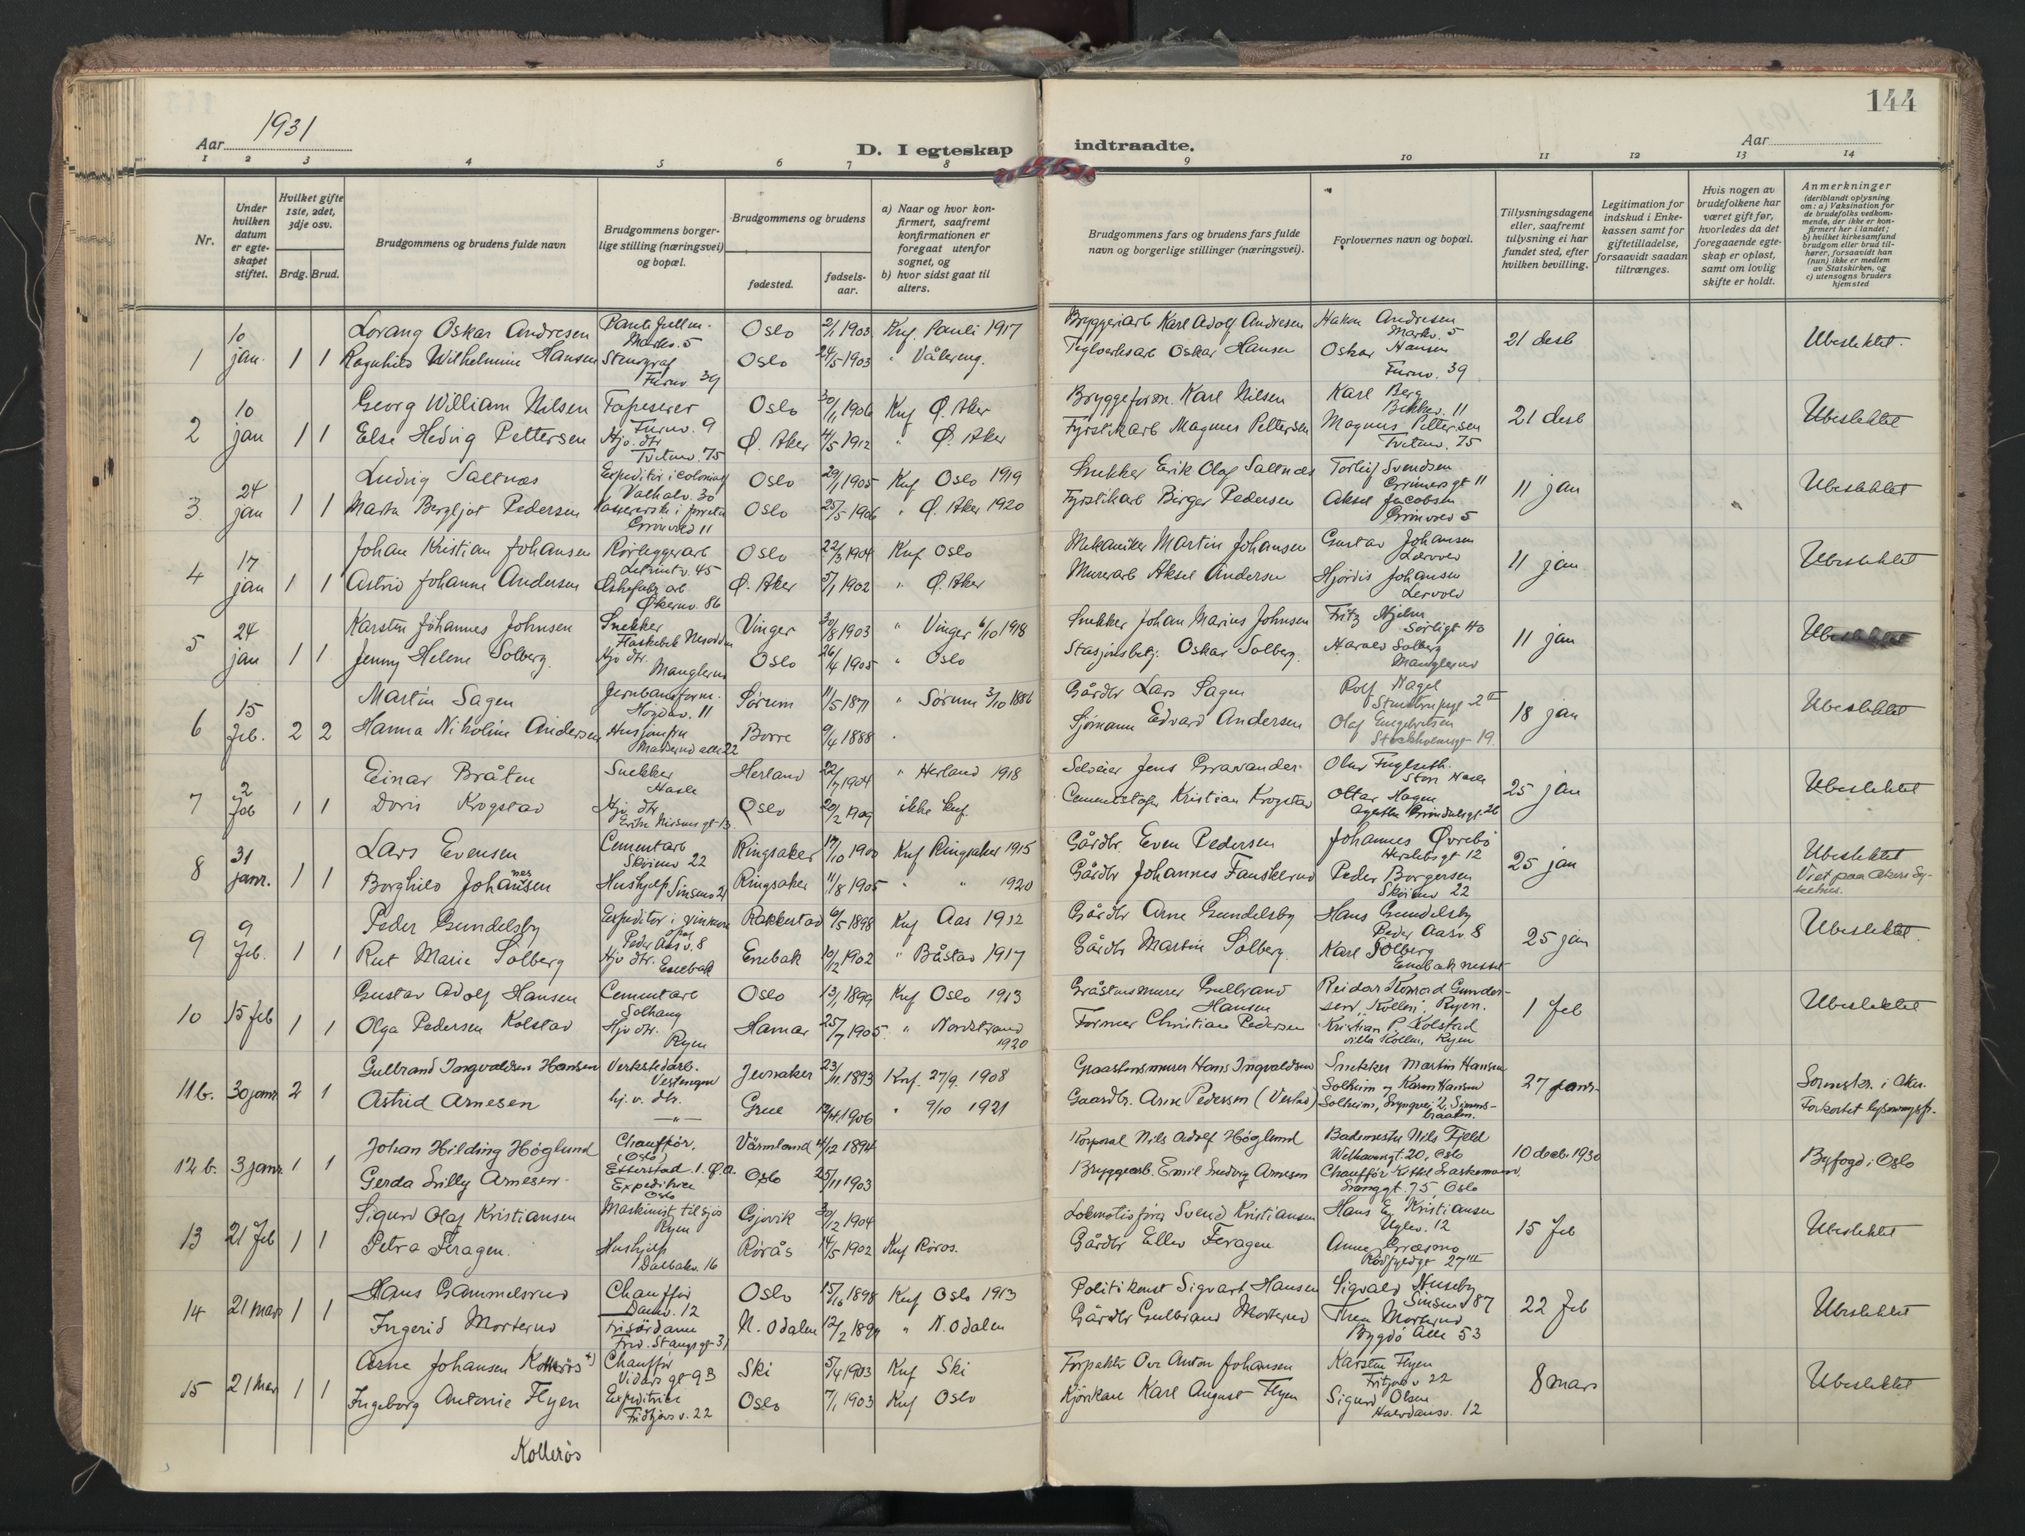 144
Aar 1931
D. I egteskap indtraadte.
Aar
1 2 3 4 5 6 7 8 9 10 11 12 13 14
Nr.
Under hvilken datum er egteskapet stiftet.
Hvilket gifte 1ste, 2det, 3dje osv.
Brdg. Brud.
Brudgommens og brudens fulde navn
Brudgommens borgerlige stilling (næringsvei) og bopæl.
Brudgommens og brudens
fødested.
fødselsaar.
a) Naar og hvor konfirmert, saafremt konfirmationen er foregaat utenfor sognet, og
b) hvor sidst gaat til alters.
Brudgommens fars og brudens fars fulde navn og borgerlige stillinger (næringsvei).
Forlovernes navn og bopæl.
Tillysningsdagene eller, saafremt tillysning ei har fundet sted, efter hvilken bevilling.
Legitimation for indskud i Enkekassen samt for giftetilladelse, forsaavidt saadan tiltrænges.
Hvis nogen av brudefolkene har været gift før, hvorledes da det foregaaende egteskap er opløst, samt om lovlig skifte er holdt.
Anmerkninger (deriblandt oplysning om: a) Vaksination for de brudefolks vedkommende, der ikke er konfirmert her i landet; b) hvilket kirkesamfund brudgom eller brud tilhører, forsaavidt han (hun) ikke er medlem av Statskirken, og c) utensogns bruders hjemsted
1 10 jan 1 1 Lorang Oskar Andresen Markv. 5 Oslo 2/1 1903 Knf Pauli 1917 Bryggeriarb Karl Adolf Andresen Hakon Andresen Markv. 5 21 desb Ubeslektet.
Ragnhild Wilhelmine Hansen Furuv. 39 Oslo 24/5 1903 " Vålereng. Teglverksarb Oskar Hansen Oskar Hansen Furuv. 39
2 10 jan 1 1 Georg William Nilsen Tapeserer Furuv. 9 Oslo 30/1 1906 Knf Ø. Aker Bryggeform. Karl Nilsen Karl Berg 11 21 desb Ubeslektet
Else Hedvig Pettersen Hjv. dtr Tvetenv. 75 Ø. Aker 4/5 1912 " Ø. Aker Fyrstikarb Magnus Pettersen Magnus Pettersen Tvetenv. 75
3 24 jan 1 1 Ludvig Saltnæs Expeditør i colonial Valhalv. 30 Oslo 29/1 1905 Knf Oslo 1919 Snekker Erik Olaf Saltnæs Torleif Svendsen Grünersgt 11 11 jan Ubeslektet
Marta Bergljot Pedersen Grönvold 11 Oslo 25/5 1906 " Ø. Aker 1920 Fyrstikarb Birger Pedersen Aksel Jacobsen Grönvold 5
4 17 jan 1 1 Johan Kristian Johansen Rørleggerarb 45 Oslo 22/3 1904 Knf Oslo Mekaniker Martin Johansen Gustav Johansen 11 jan Ubeslektet
Astrid Johanne Andersen Økernv. 86 Ø. Aker 5/1 1902 " Ø. Aker Murerarb Aksel Andersen Hjørdis Johansen
5 24 jan 1 1 Karsten Johannes Johnsen Snekker Nesodden Vinger 30/8 1903 " Vinger 6/10 1918 Snekker Johan Marius Johnsen Fritz Hjelm Sørligt 40 11 jan Ubeslektet
Jenny Helene Solberg. Hjv dtr. Manglerud Oslo 26/4 1905 " Oslo Stasjonsbetj. Oskar Solberg. Harald Solberg Manglerud
6 15 Feb. 2 2 Martin Sagen Jernbaneform. 11 Sørum 11/5 1871 " Sørum 3/10 1886 Gårdbr Lars Sagen Rolf Nagel 18 jan Ubeslektet
Hanna Nikoline Andersen Husjomfru Marserud alle 22 Borre 9/4 1888 Sjømann Edvard Andersen Olaf Engebretsen Stockholmsgt 19.
7 2 Feb 1 1 Einar Bråten Snekker Hasle Herland 22/7 1904 " Herland 1918 Selveier Jens Gravander Olav Fuglseth. Store Hasle 25 jan Ubeslektet
Doris Krogstad Hjv dtr. 13 Oslo 20/2 1909 ikke knf. Cementstøper Kristian Krogstad Ottar Hagen 26
8 31 janr. 1 1 Lars Evensen Cementarb Skøienv 22 Ringsaker 17/10 1900 Knf Ringsaker 1915 Gårdbr Even Pedersen Johannes Øvrebø Herslebsgt 12 25 jan Ubeslektet Viet paa Akers Sykehus.
Borghild Johansen Hushjelp Sinsenv 21 Ringsaker 11/8 1905 " " 1920 Gårdbr Johannes Fauskerud Peder Borgersen Skøienv 22
9 9 Feb. 1 1 Peder Gundelsby Expeditør i Peder Aasv. 8 Rakkestad 6/5 1898 Knf Aas 1912 Gårdbr Arne Gundelsby Hans Gundelsby Peder Aasv. 8 25 jan Ubeslektet.
Rut Marie Solberg Hjv dtr. Enebak Enebak 10/12 1902 " Båstad 1917 Gårdbr Martin Solberg. Karl Solberg Enebaknesset
10 15 Feb 1 1 Gustav Adolf Hansen Cementarb Solhaug Oslo 13/1 1899 Knf Oslo 1913 Gråstensmurer Gulbrand Hansen Reidar Konrad Gundersen, Kollen, Ryen. 1 Feb Ubeslektet
Olga Pedersen Kolstad Hjv dtr. Ryen Hamar 25/7 1905. " Nordstrand 1920 Former Christian Pedersen Kristian P. Kolstad villa Kollen, Ryen
11 b. 30 janr 2 1 Gulbrand Ingvaldsen Hansen Verkstedarb. Vestengen Jevnaker 23/11 1893 Knf. 27/9 1908 Graastensmurer Hans Ingvaldsen Snekker Martin Hansen Solheim og Karen Hansen 27 janr. Sorenskr. i Aker.
Astrid Arnesen hj. v. dtr. —"— Grue 12/4 1906 " 9/10 1921 Gaardbr. Arne Pedersen (Vestad) Solheim, Forkortet lysningsfr.
12 b. 3 janr 1 1 Johan Hilding Höglund Chauffør. (Oslo) Etterstad 1. Ø.A. Värmland 4/12 1894 Korporal Nils Adolf Höglund Bademester Nils Fjeld Welhavensgt 20, Oslo 10 decb 1930 Byfogd i Oslo
Gerda Lilly Arnesen. Expeditrice Oslo Oslo 25/11 1903 Bryggearb Emil Ludvig Arnesen Chauffør 75 Oslo
13 21 Feb 1 1 Sigurd Olaf Kristiansen Maskinist tilsjøs Ryen Gjøvik 30/12 1904 Lokomotivfører Svend Kristiansen Hans E. Kristiansen Uglev. 12 15 Feb Ubeslektet
Petra Feragen. Hushjelp Dalbakv. 16 Rørås 14/5 1902 Knf Røros. Gårdbr Ellev Feragen Anne 27 III
14 21 mars 1 1 Hans Gammelsrud Chauffør Danev. 12 Oslo 15/10 1898 Knf Oslo 1913 Politikonst Sigvart Hansen Sigvald Huseby Sinsen 87 22 Feb Ubeslektet
Ingerid Morterud Frisördame Frd. Stangsgt 31 N. Odalen 12/2 1899 " N. Odalen Gårdbr Gulbrand Morterud Thea Morterud Bygdö Alle 53
15 21 mar 1 1 Arne Johansen Kollerös +) Chauffør Vidarsgt 93 Ski 5/4 1903 Knf Ski Forpakter Ove Anton Johansen Karsten Flyen Fritjovsv 22 8 mars Ubeslektet
Ingeborg Antonie Flyen Expeditrice Fridtjovs v. 22 Oslo 7/1 1903 Knf Oslo Kjørekar Karl August Flyen Sigurd Olsen Halvdansv. 12
Kollerös